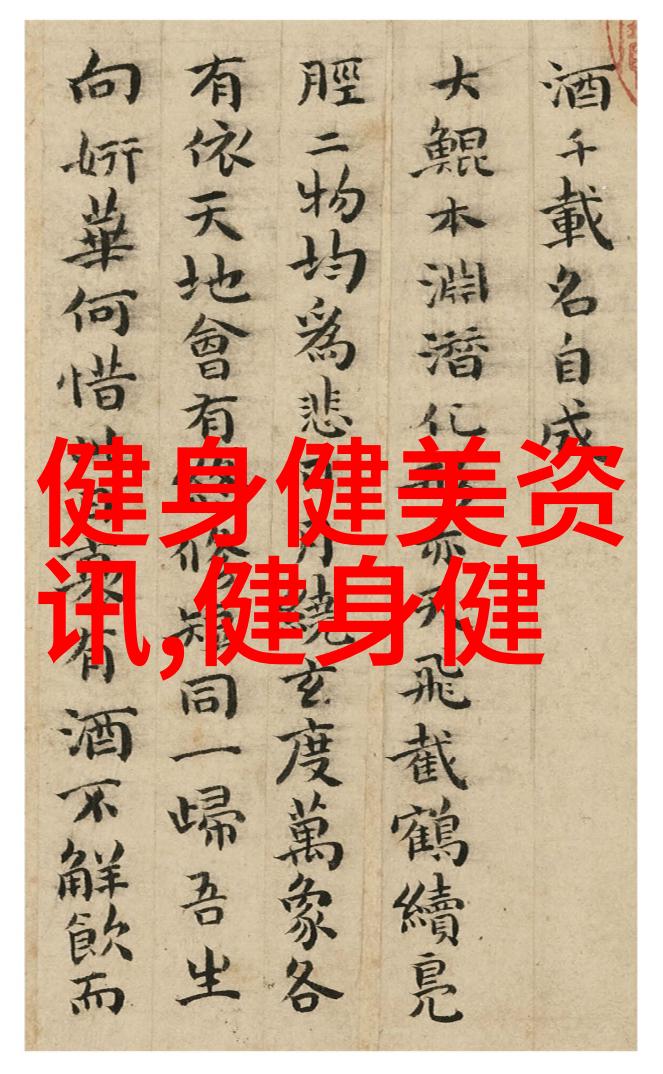 酒千載名自成
大鯤本淵潛化亦天飛截鶴續鳧
脛二物均爲悲月繞玄度萬象各
有依天地會有修短同一歸吾生
向妍華何惜衰有酒不觧飲而
健身健美资
讯,健身健